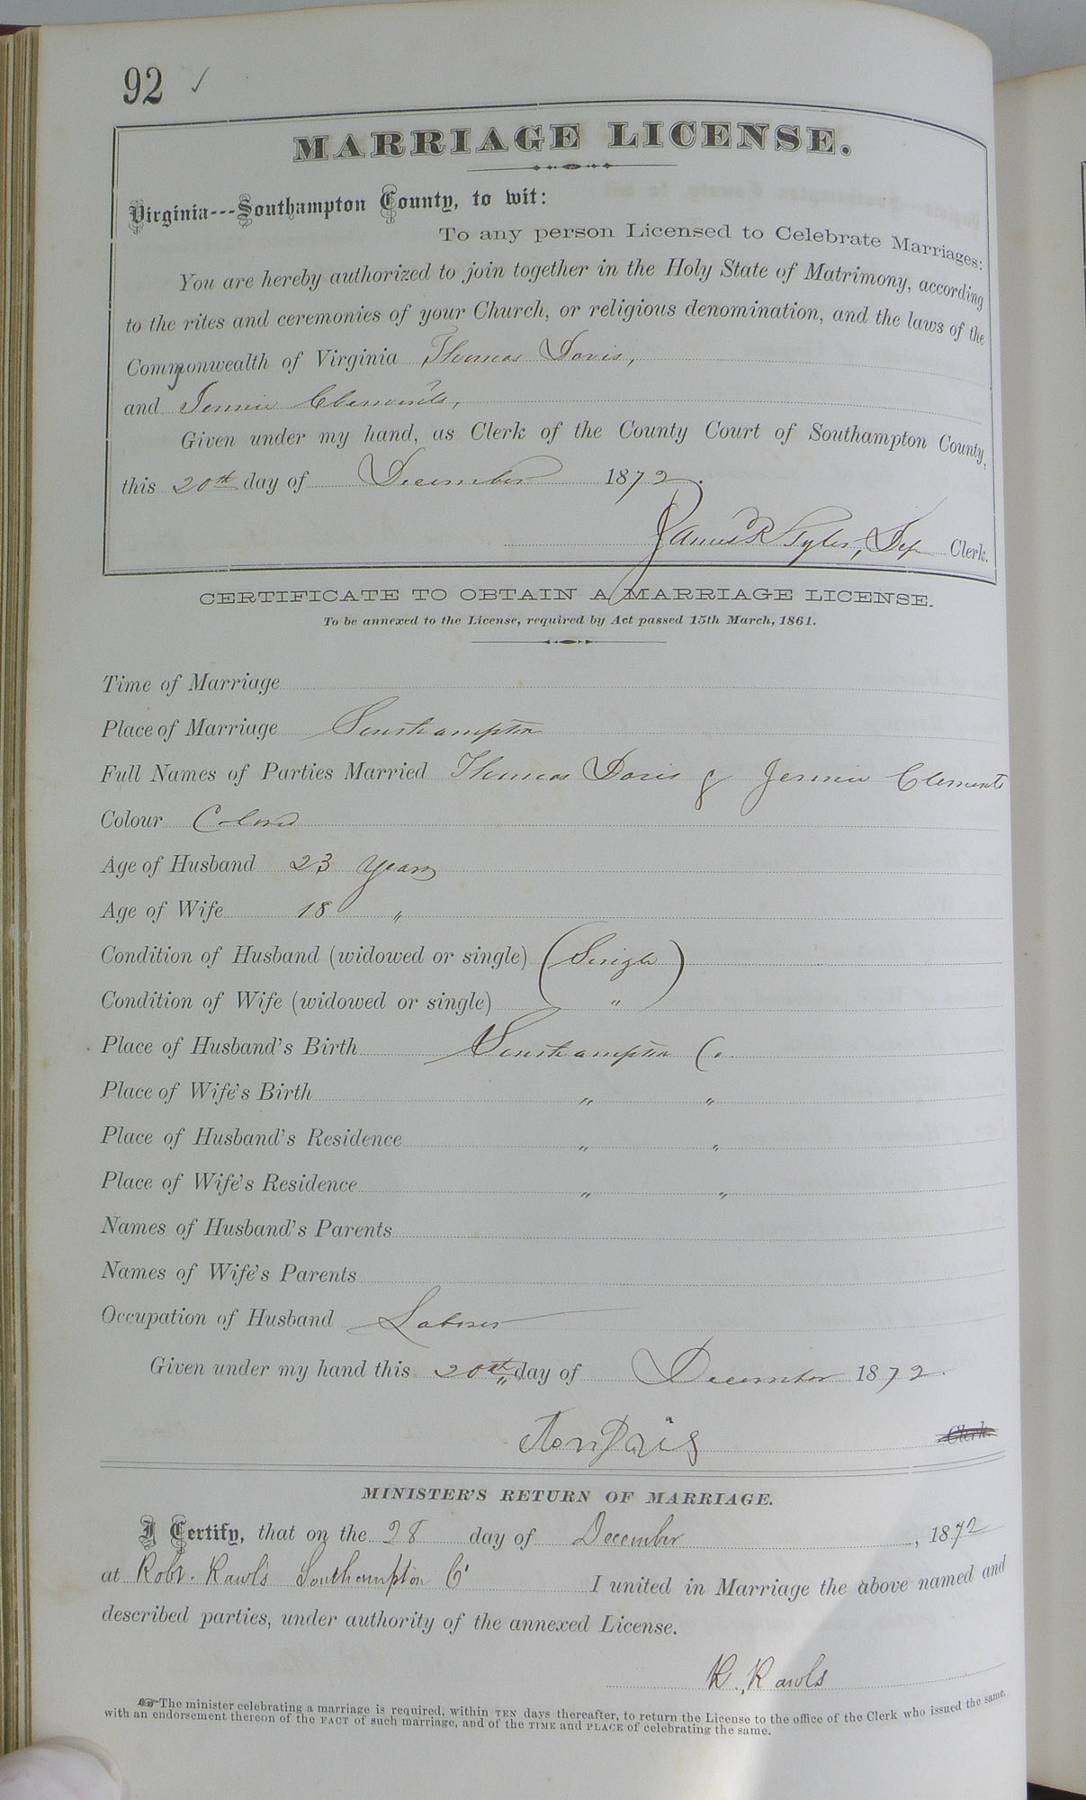 92 ✓
MARRIAGE LICENSE.
Virginia---Southampton County, to wit:
To any person Licensed to Celebrate Marriages:
You are hereby authorized to join together in the Holy State of Matrimony, according
to the rites and ceremonies of your Church, or religious denomination, and the laws of the
Commonwealth of Virginia Thomas Davis,
and Jennie Clements,
Given under my hand, as Clerk of the County Court of Southampton County,
this 20th day of December 1872.
James R Tyler, Dep Clerk.
CERTIFICATE TO OBTAIN A MARRIAGE LICENSE.
To be annexed to the License, required by Act passed 15th March, 1861.
Time of Marriage
Place of Marriage Southampton
Full Names of Parties Married Thomas Davis & Jennie Clements
Colour Colored
Age of Husband 23 years
Age of Wife 18 "
Condition of Husband (widowed or single) (Single)
Condition of Wife (widowed or single) "
Place of Husband's Birth Southampton Co.
Place of Wife's Birth " "
Place of Husband's Residence " "
Place of Wife's Residence " "
Names of Husband's Parents
Names of Wife's Parents
Occupation of Husband Laborer
Given under my hand this 20th day of December 1872.
Clerk.
MINISTER'S RETURN OF MARRIAGE.
I Certify, that on the 28 day of December, 1872
at Robt. Rawls Southampton Co I united in Marriage the above named and
described parties, under authority of the annexed License.
R. Rawls
The minister celebrating a marriage is required, within TEN days thereafter, to return the License to the office of the Clerk who issued the same,
with an endorsement thereon of the FACT of such marriage, and of the TIME and PLACE of celebrating the same.